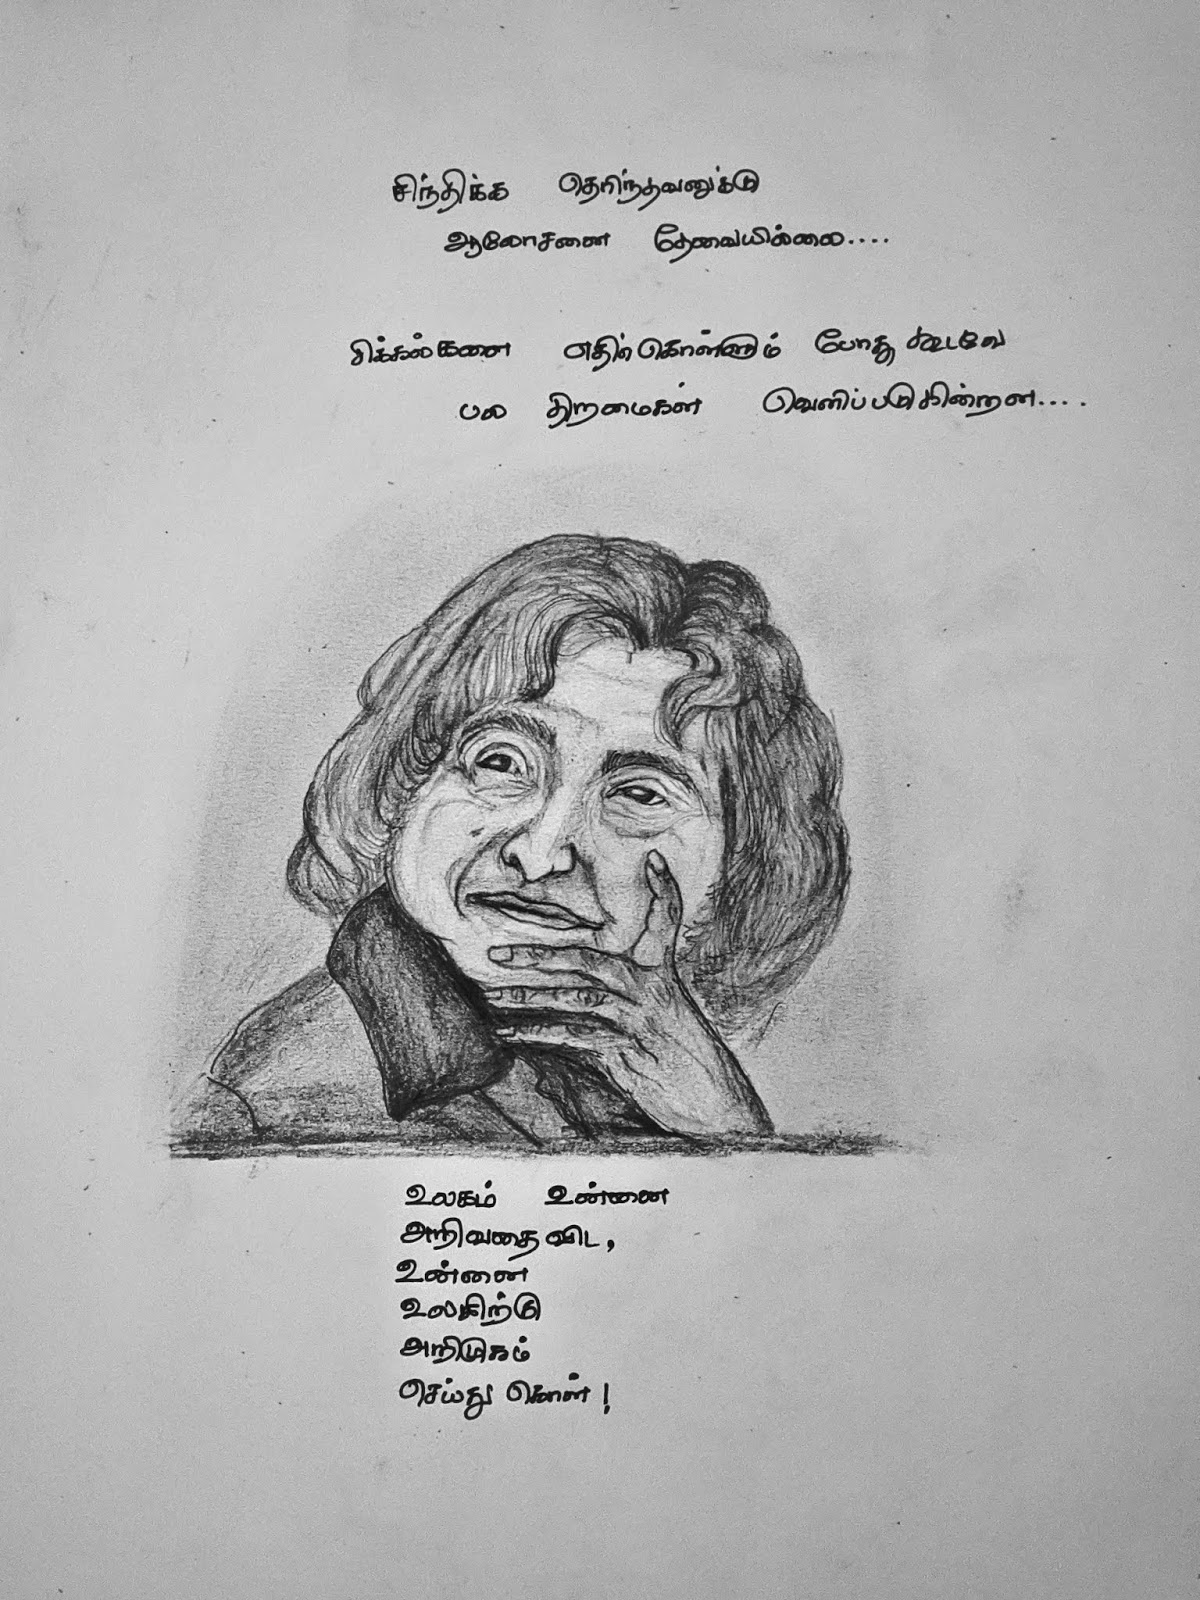 சிந்திக்க தெரிந்தவனுக்கு
ஆலோசனை தேவையில்லை....
சிக்கல்களை எதிர்கொள்ளும் போது கூடவே
பல திறமைகள் வெளிப்படுகின்றன....
உலகம் உன்னை
அறிவதைவிட,
உன்னை
உலகிற்கு
அறிமுகம்
செய்து கொள்!